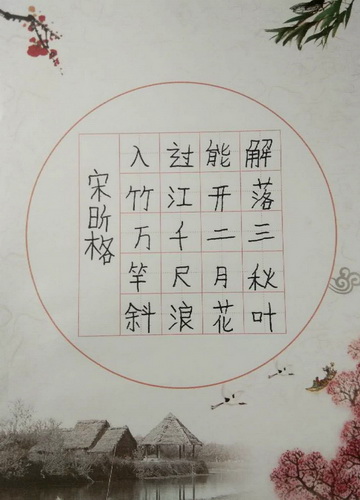 解落三秋叶
能开二月花
过江千尺浪
入竹万竿斜
宋昕格